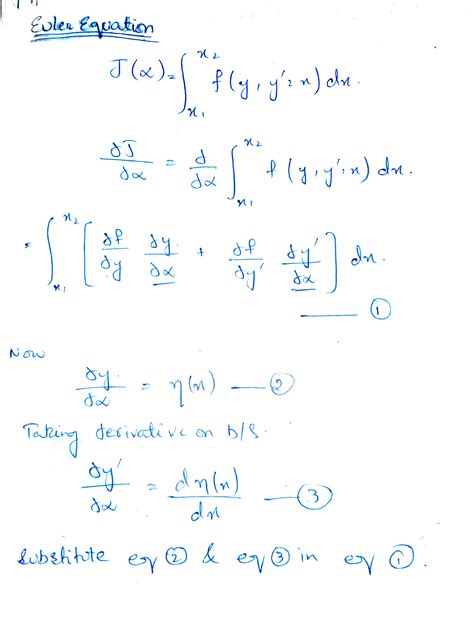 Euler Equation
J(α) = ∫_{x₁}^{x₂} f(y, y'; x) dx.
∂J/∂α = ∂/∂α ∫_{x₁}^{x₂} f(y, y'; x) dx.
= ∫_{x₁}^{x₂} [∂f/∂y ∂y/∂α + ∂f/∂y' ∂y'/∂α] dx.
—— ①
Now
∂y/∂α = η(x) —— ②
Taking derivative on b/s.
∂y'/∂α = dη(x)/dx —— ③
Substitute eq ② & eq ③ in eq ①.